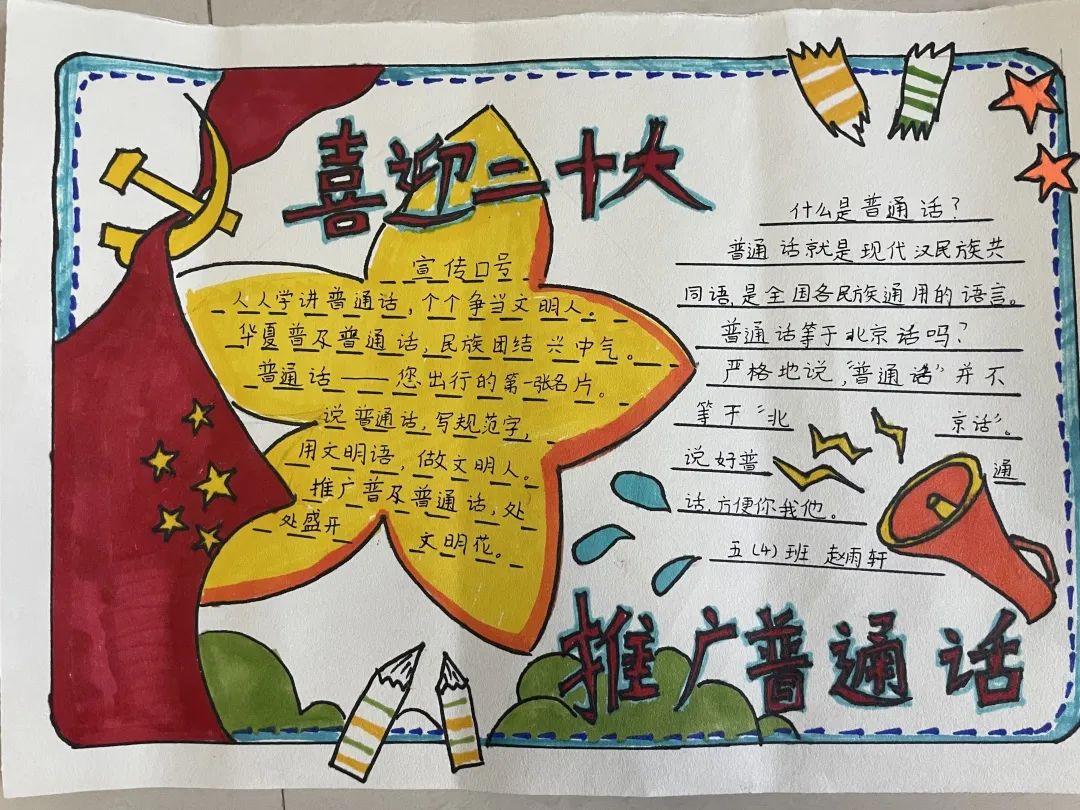 喜迎二十大
宣传口号
人人学讲普通话，个个争当文明人。
华夏普及普通话，民族团结兴中气。
普通话——您出行的第一张名片。
说普通话，写规范字，
用文明语，做文明人。
推广普及普通话，处
处盛开 文明花。
什么是普通话？
普通话就是现代汉民族共
同语，是全国各民族通用的语言。
普通话等于北京话吗？
严格地说，“普通话”并不
等于“北 京话”。
说好普 通
话，方便你我他。
五（4）班 赵雨轩
推广普通话